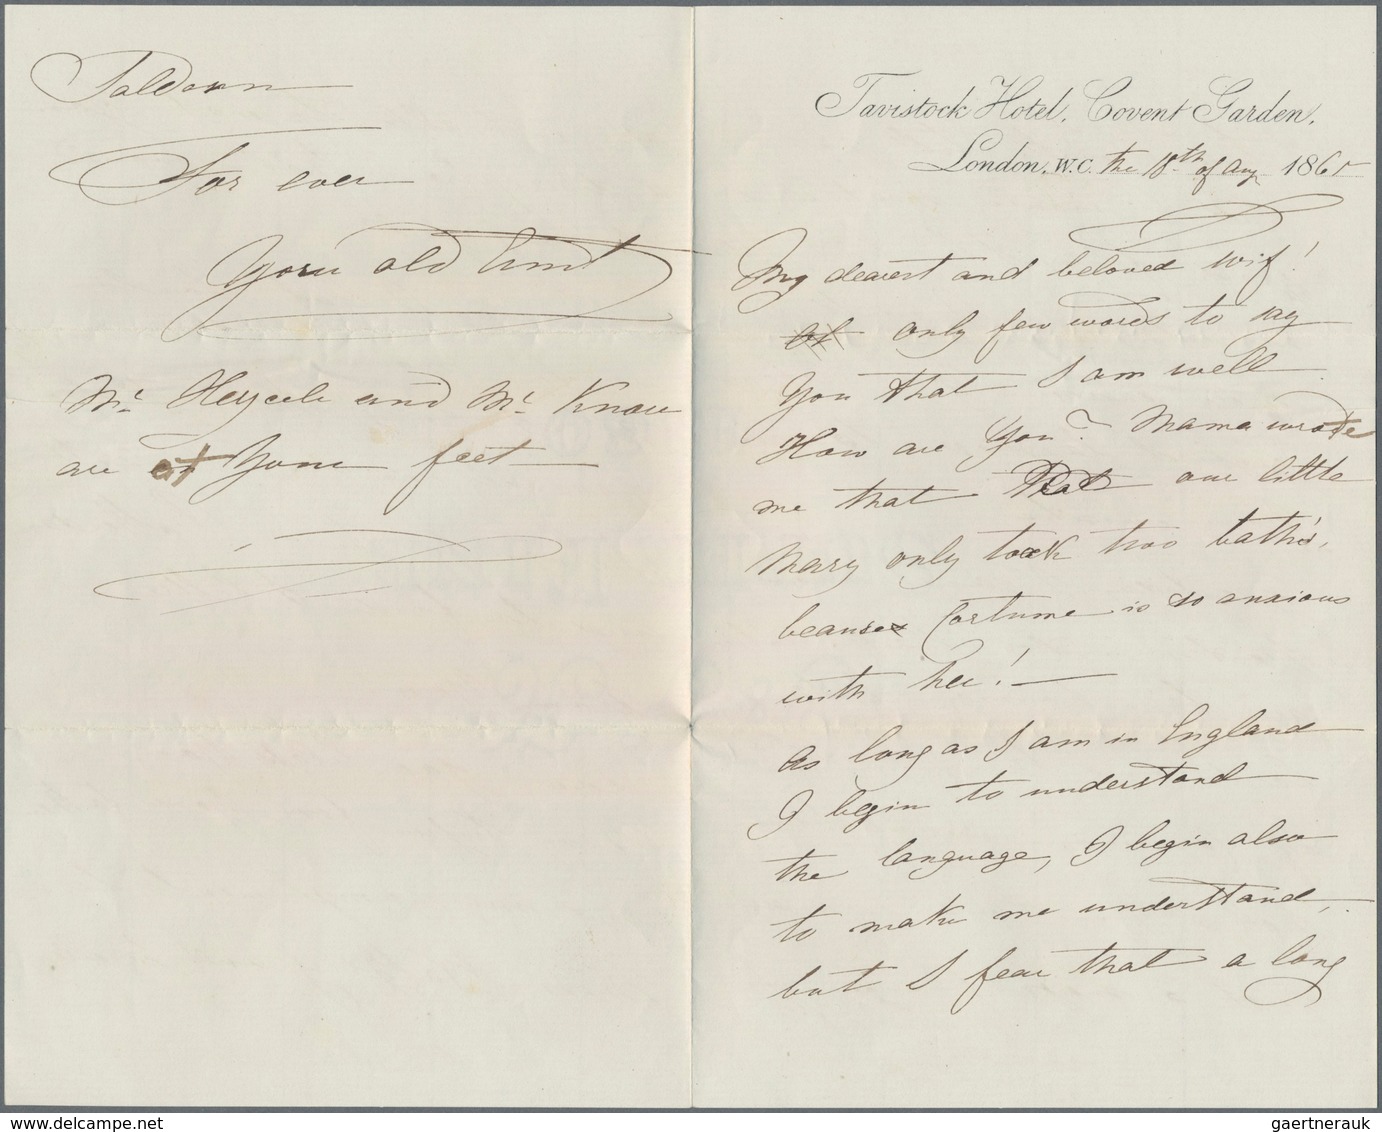 Tavistock Hotel, Covent Garden,
London, W.C. the 18th of Aug 1865
My dearest and beloved wif!
only few words to say
You that I am well
How are You? Mama wrote
me that that our little
Mary only took two bath's,
beause is so anxious
with her! —
As long as I am in England
I begin to understand
the language, I begin also
to make me understand,
but I fear that a long
For ever
Your old
Mr. and Mr. Knau
are at Your feet
gaertnerauk